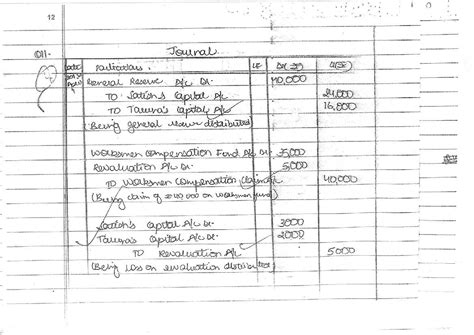 12
Journal
Date Particulars. LF Dr (₹) Cr (₹)
General Reserve A/c Dr. 40,000
TO Sation's Capital A/c 24,000
TO Taruna's Capital A/c 16,000
(Being general reserve distributed)
Workmen Compensation Fund A/c Dr.
Revaluation A/c Dr. 5,000
TO Workmen Compensation Claim A/c 40,000
(Being claim of on workmen
Sation's Capital A/c Dr. 3000
Taruna's Capital A/c Dr. 2000
TO Revaluation A/c 5000
(Being loss on revaluation distributed)